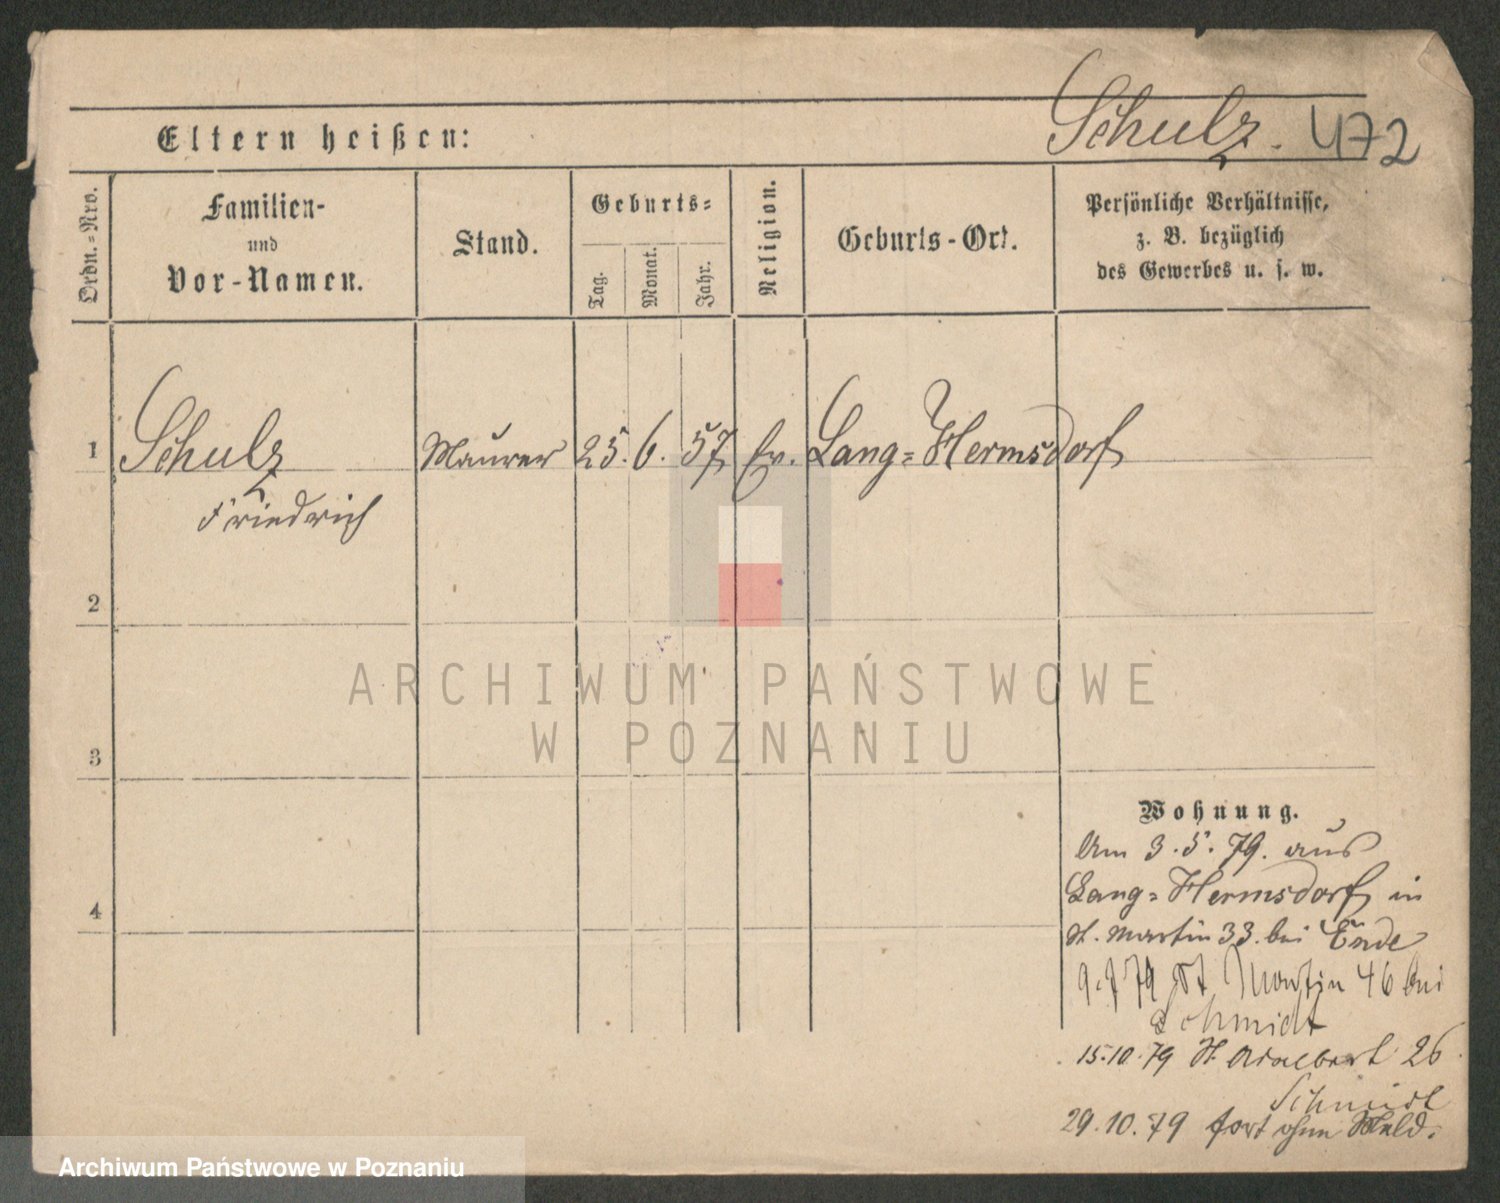 Schulz. 472
Eltern heißen:
Ordn.=Nro.
Familien-
und
Vor-Namen.
Stand.
Geburts=
Tag.
Monat.
Jahr.
Religion.
Geburts-Ort.
Persönliche Verhältnisse,
z. B. bezüglich
des Gewerbes u. s. w.
1 Schulz Maurer 25. 6. 57 Ev. Lang=Hermsdorf
Friedrich
2
ARCHIWUM PAŃSTWOWE
W POZNANIU
3
Wohnung.
Am 3.5.79. aus
Lang=Hermsdorf in
4
St. Martin 33. bei Ende
9.7 79 St Martin 46 bei
Schmidt
15.10.79 St. Adalbert 26
Schmidt
29.10.79 fort ohne Meld.
Archiwum Państwowe w Poznaniu